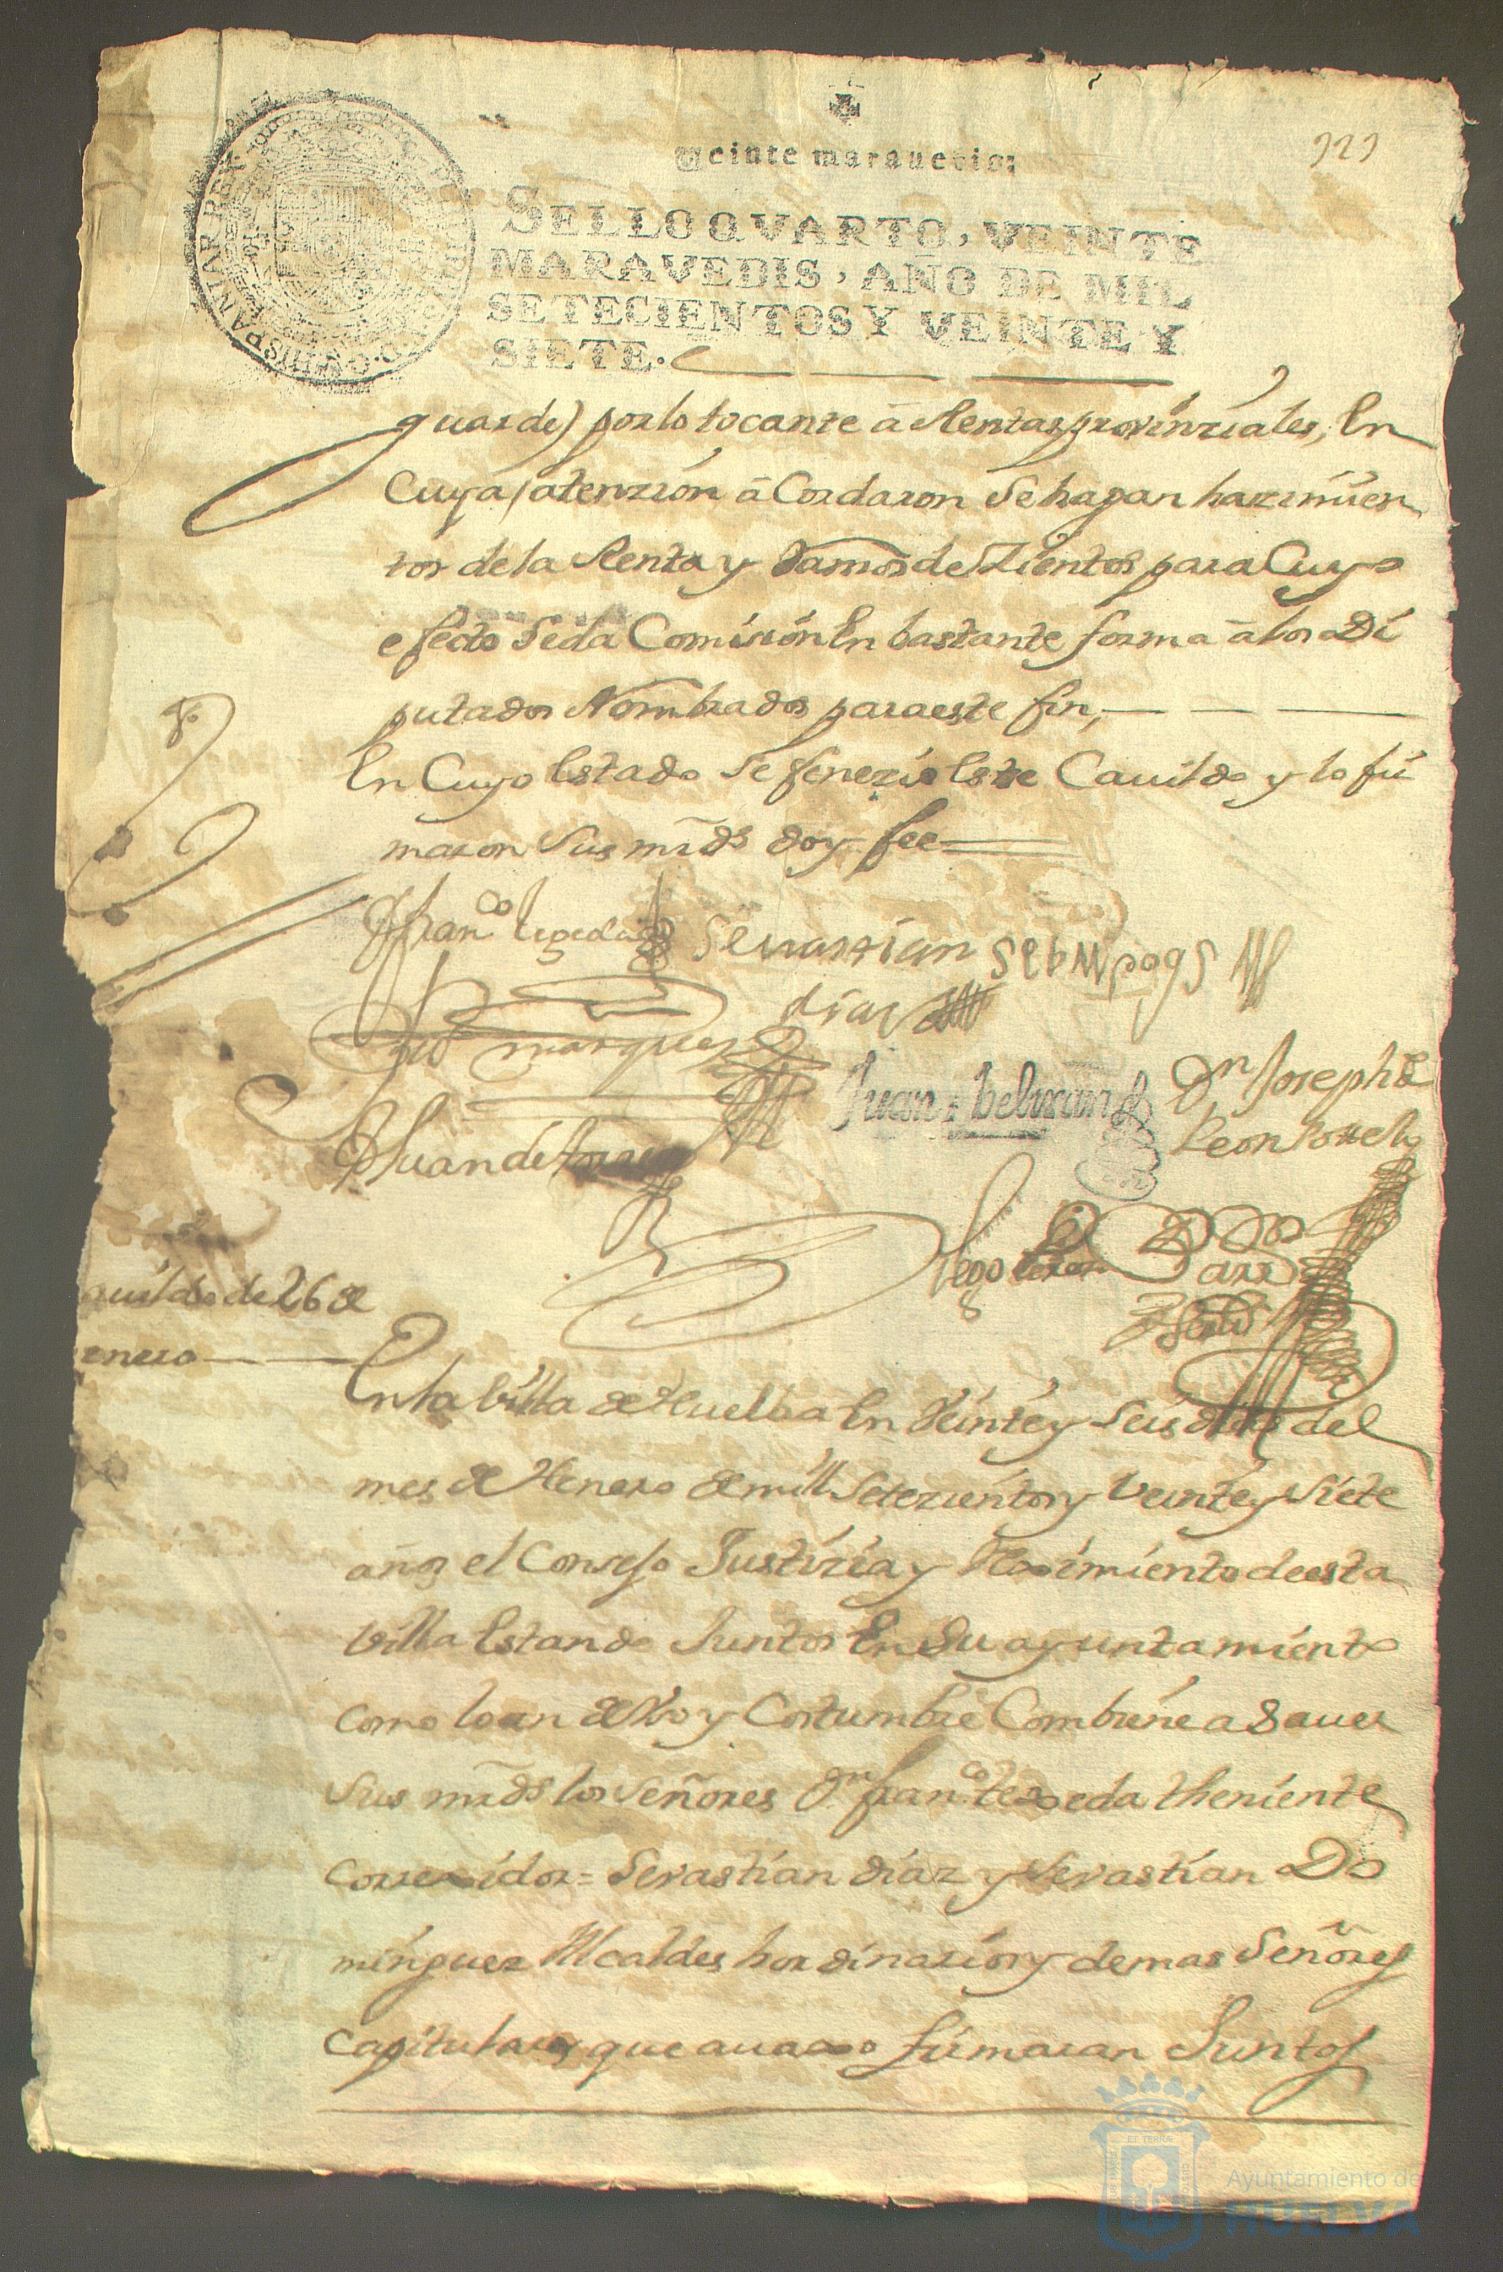 Veinte marauedis;
323
SELLO QVARTO, VEINTE
MARAVEDIS, AÑO DE MIL
SETECIENTOS Y VEINTE Y
SIETE.
HISPANIAR REX
guarde) por lo tocante â Rentas provinziales, En
Cuya atenzion â Cordaron Se hagan hazimien
tos de la Renta y Ramos de Zientos para Cuyo
efecto Se da Comision En bastante forma â los Di
putados Nombrados para este fin,
En Cuyo Estado Se fenezio Este Cauildo y lo fir
maron Sus mrds doy fee
Franco texeda
Sevastian
dias
marques
Juan beltran
Dn Joseph de
Leon
Juan de torres
Diego
auildo de 26 de
enero
En la villa de Huelba En Veinte y Seis dias del
mes de Henero de mill Setezientos y Veinte y Siete
años el Consejo Justizia y Reximiento de esta
villa Estando Juntos En Su ayuntamiento
como lo an de Vso y Costumbre Combiene a Sauer
Sus mrds los Señores Dn franco texeda theniente
correxidor = Sevastian diaz y Sevastian Do
minguez Alcaldes hordinarios y demas Señores
Capitulares que auaxo firmaran Juntos
Ayuntamiento de
HUELVA